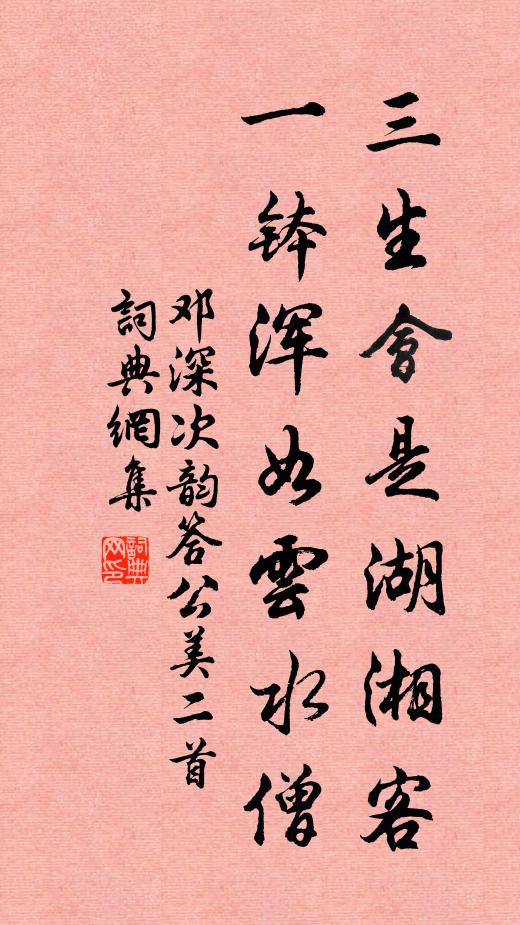 三生會是湖湘客
一钵浑如雲水僧
邓深次韵答公美二首
詞典網集
詞典网印